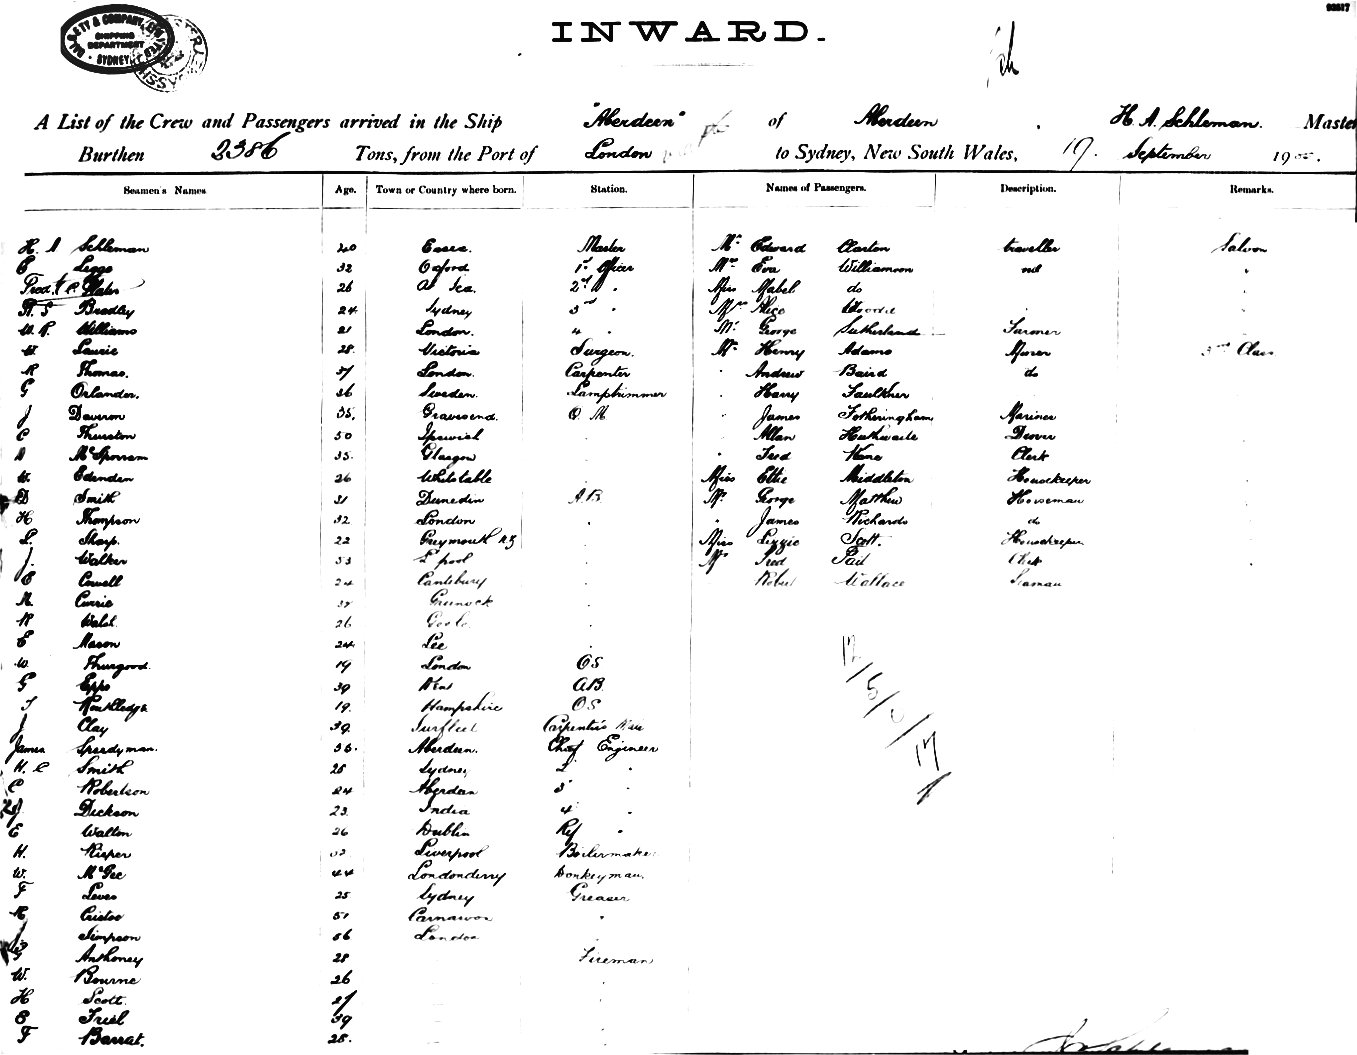 93817
DALGETY & COMPANY, LIMITED
SHIPPING DEPARTMENT
SYDNEY
INWARD.
A List of the Crew and Passengers arrived in the Ship "Aberdeen" of Aberdeen H. A. Schleman. Master
Burthen 2386 Tons, from the Port of London to Sydney, New South Wales, 17. September 1905.
Seamen's Names Age. Town or Country where born. Station. Names of Passengers. Description. Remarks.
H. A Schleman 40 Essex. Master Mr Edward Clarton traveller Saloon
E Leggo 32 Oxford 1st Officer Mrs Eva Williamson nil "
Fred. C Slater 26 At Sea. 2nd " Miss Mabel do
H. S Bradley 24 Sydney 3rd " Mrs Alice
W. R. Williams 21 London. 4 " Mr George Sutherland Farmer
W. Laurie 28. Victoria Surgeon. Mr Henry Adams Miner 3rd Class
R Thomas. 37 London. Carpenter " Andrew Baird do
G Orlander. 36 Sweden. Lamptrimmer " Harry Faulkner
J Davison 35. Gravesend. Q M " James Fotheringham Mariner
C Thurston 50 Ipswich " Allan Huthwaite Drover
A McSporram 35. Glasgow " Fred Kane Clerk
W. Edenden 26 Whitstable Miss Ettie Middleton Housekeeper
D Smith 31 Dunedin A.B Mr George Matthew Horseman
H Thompson 32 London " " James Richards do
L. Sharp. 22 Greymouth N.Z " Miss Lizzie Scott. Housekeeper
J. Walker 33 L'pool " Mr Fred Pail Clerk
E Cowell 24 Cantebury " Robert Wallace Seaman
M Currie Greenock "
R Walsh 26 Goole "
E Mason 24 Lee "
W Thurgood. 19 London OS
G Epps 39 A.B.
J Routledge 19. Hampshire OS
J Clay 39. Surfleet Carpenter's Mate
James Speedyman. 36. Aberdeen. Chief Engineer
H. C Smith 25 Sydney 2 "
C Robertson 24 Aberdeen 3 "
J. Dickson 23. India 4 "
E Walton 26 Dublin Ref "
H. Kisper Liverpool Boilermaker
W. McGee 44 Londonderry Donkeyman.
F Leves 25 Sydney Greaser
R Cristoe 51 Carnarvon "
Simpson 56 London "
Anthoney 28 Fireman
W. Bourne 26
H Scott 27
E Friel 39
F Barrat. 28.
12/5/0/17
1